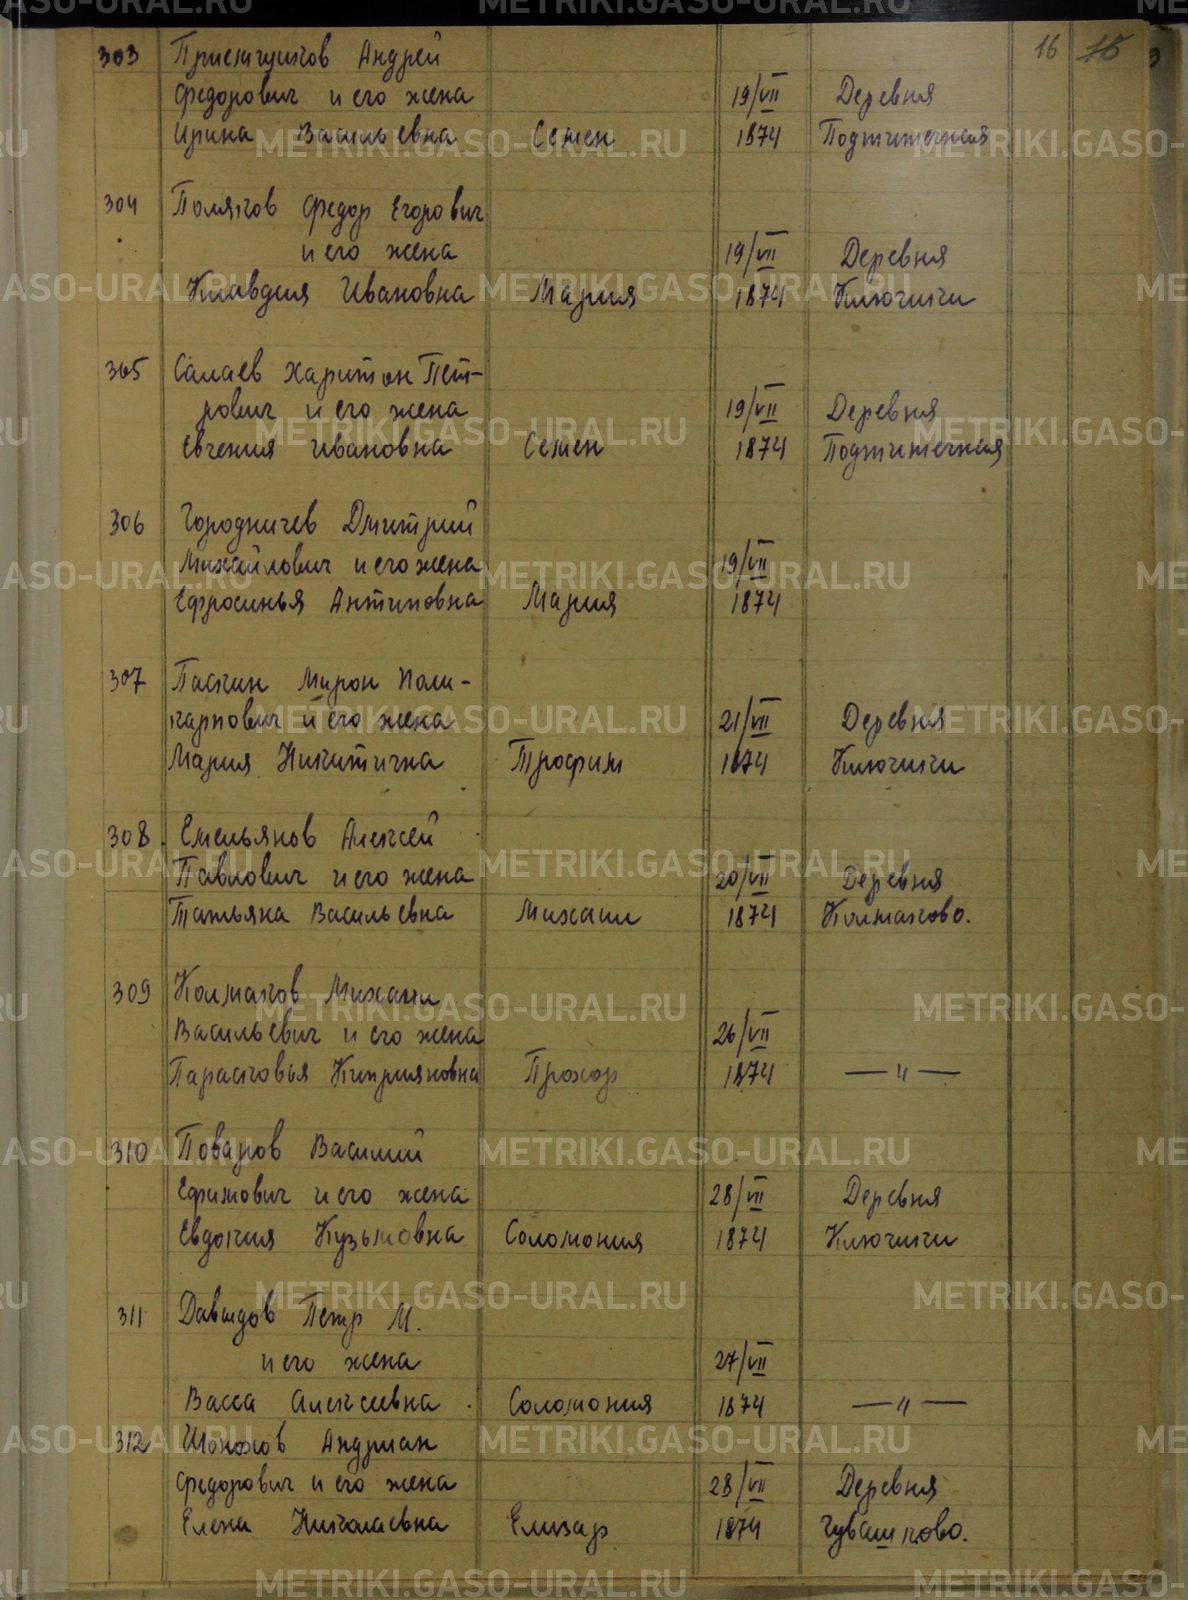 16 15
303 Присмгунов Андрей
Федорович и его жена 19/VII Деревня
Ирина Васильевна Семен 1874 Подтитечная
304 Поляков Федор Егорович
и его жена 19/VII Деревня
Клавдия Ивановна Мария 1874 Ключики
305 Салаев Харитон Пет-
рович и его жена 19/VII Деревня
Евгения Ивановна Семен 1874
306 Городничев Дмитрий
Михайлович и его жена 19/VII
Ефросинья Антиповна Мария 1874
307 Паскин Мирон Поли-
карпович и его жена 21/VII Деревня
Мария Никитична Трофим 1874 Ключики
308 Емельянов Алексей
Павлович и его жена 20/VII Деревня
Татьяна Васильевна Михаил 1874 Колмаково.
309 Колмаков Михаил
Васильевич и его жена 26/VII
Парасковья Киприяновна Прохор 1874 — " —
310 Поваров Василий
Ефимович и его жена 28/VII Деревня
Евдокия Кузьмовна Соломония 1874 Ключики
311 Давыдов Петр М.
и его жена 27/VII
Васса Алексеевна Соломония 1874 — " —
312 Шонохов Андриан
Федорович и его жена 28/VII Деревня
Елена Николаевна Елизар 1874 Чувашково.
METRIKI.GASO-URAL.RU